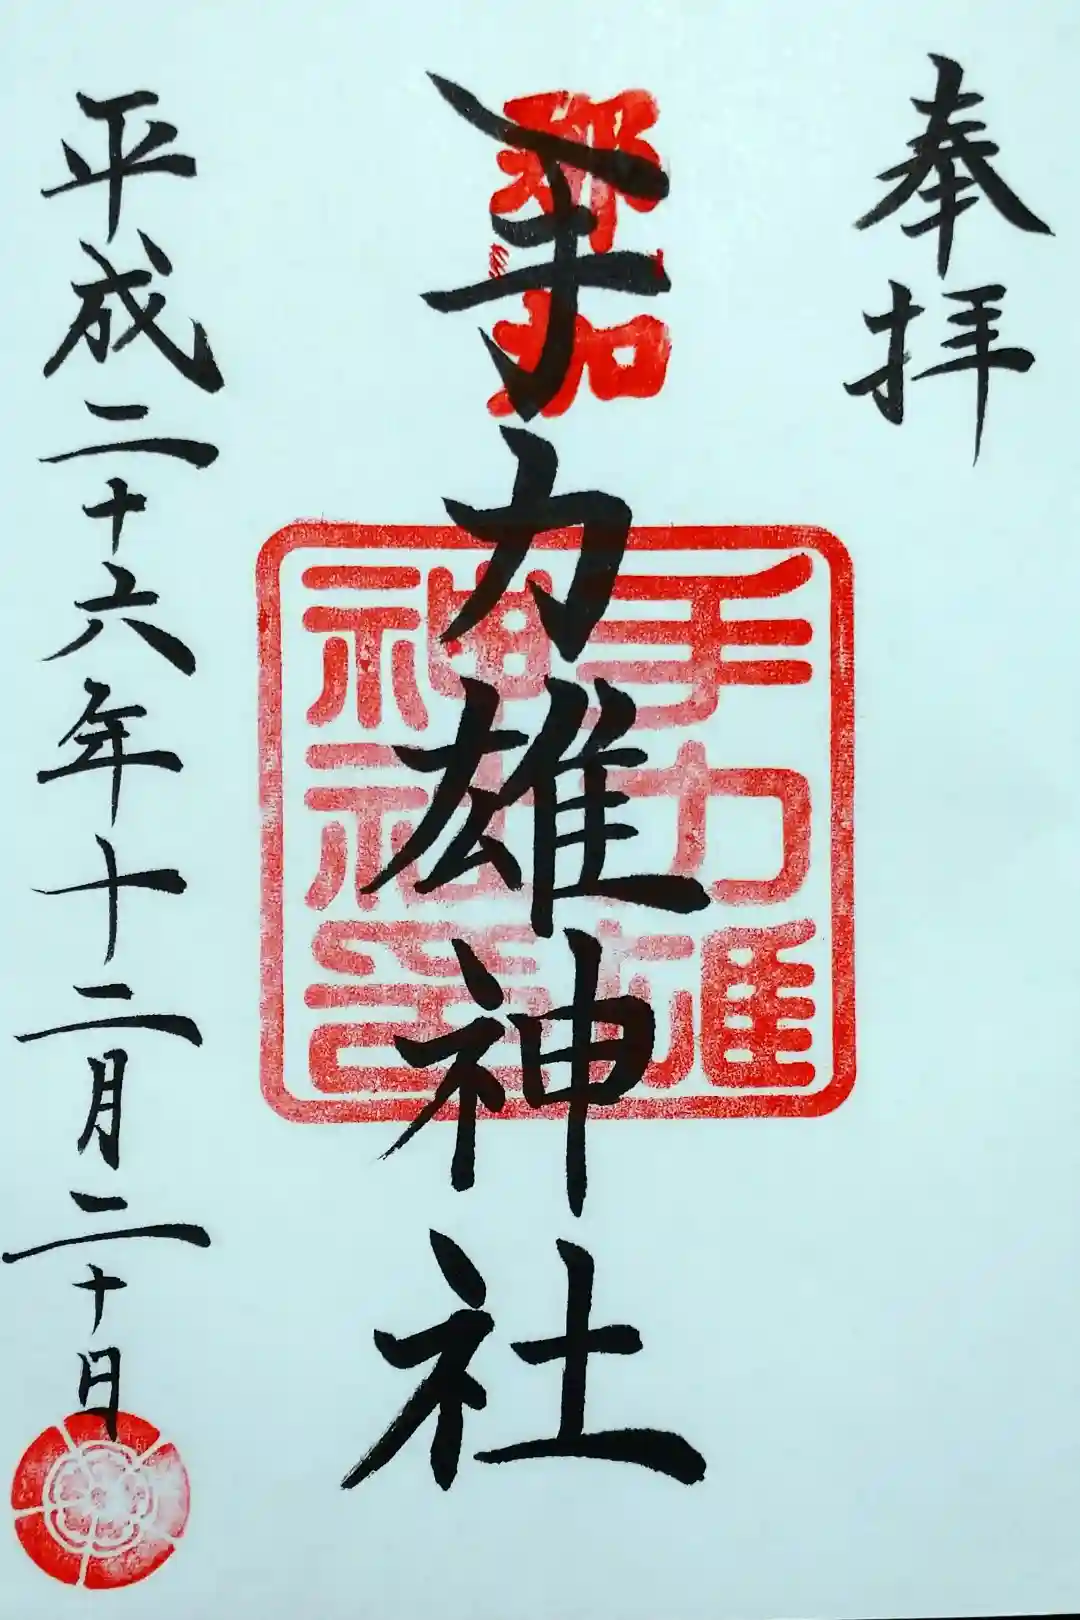 奉拝
那加
手力雄神社
手力雄
神社印
平成二十六年十二月二十日